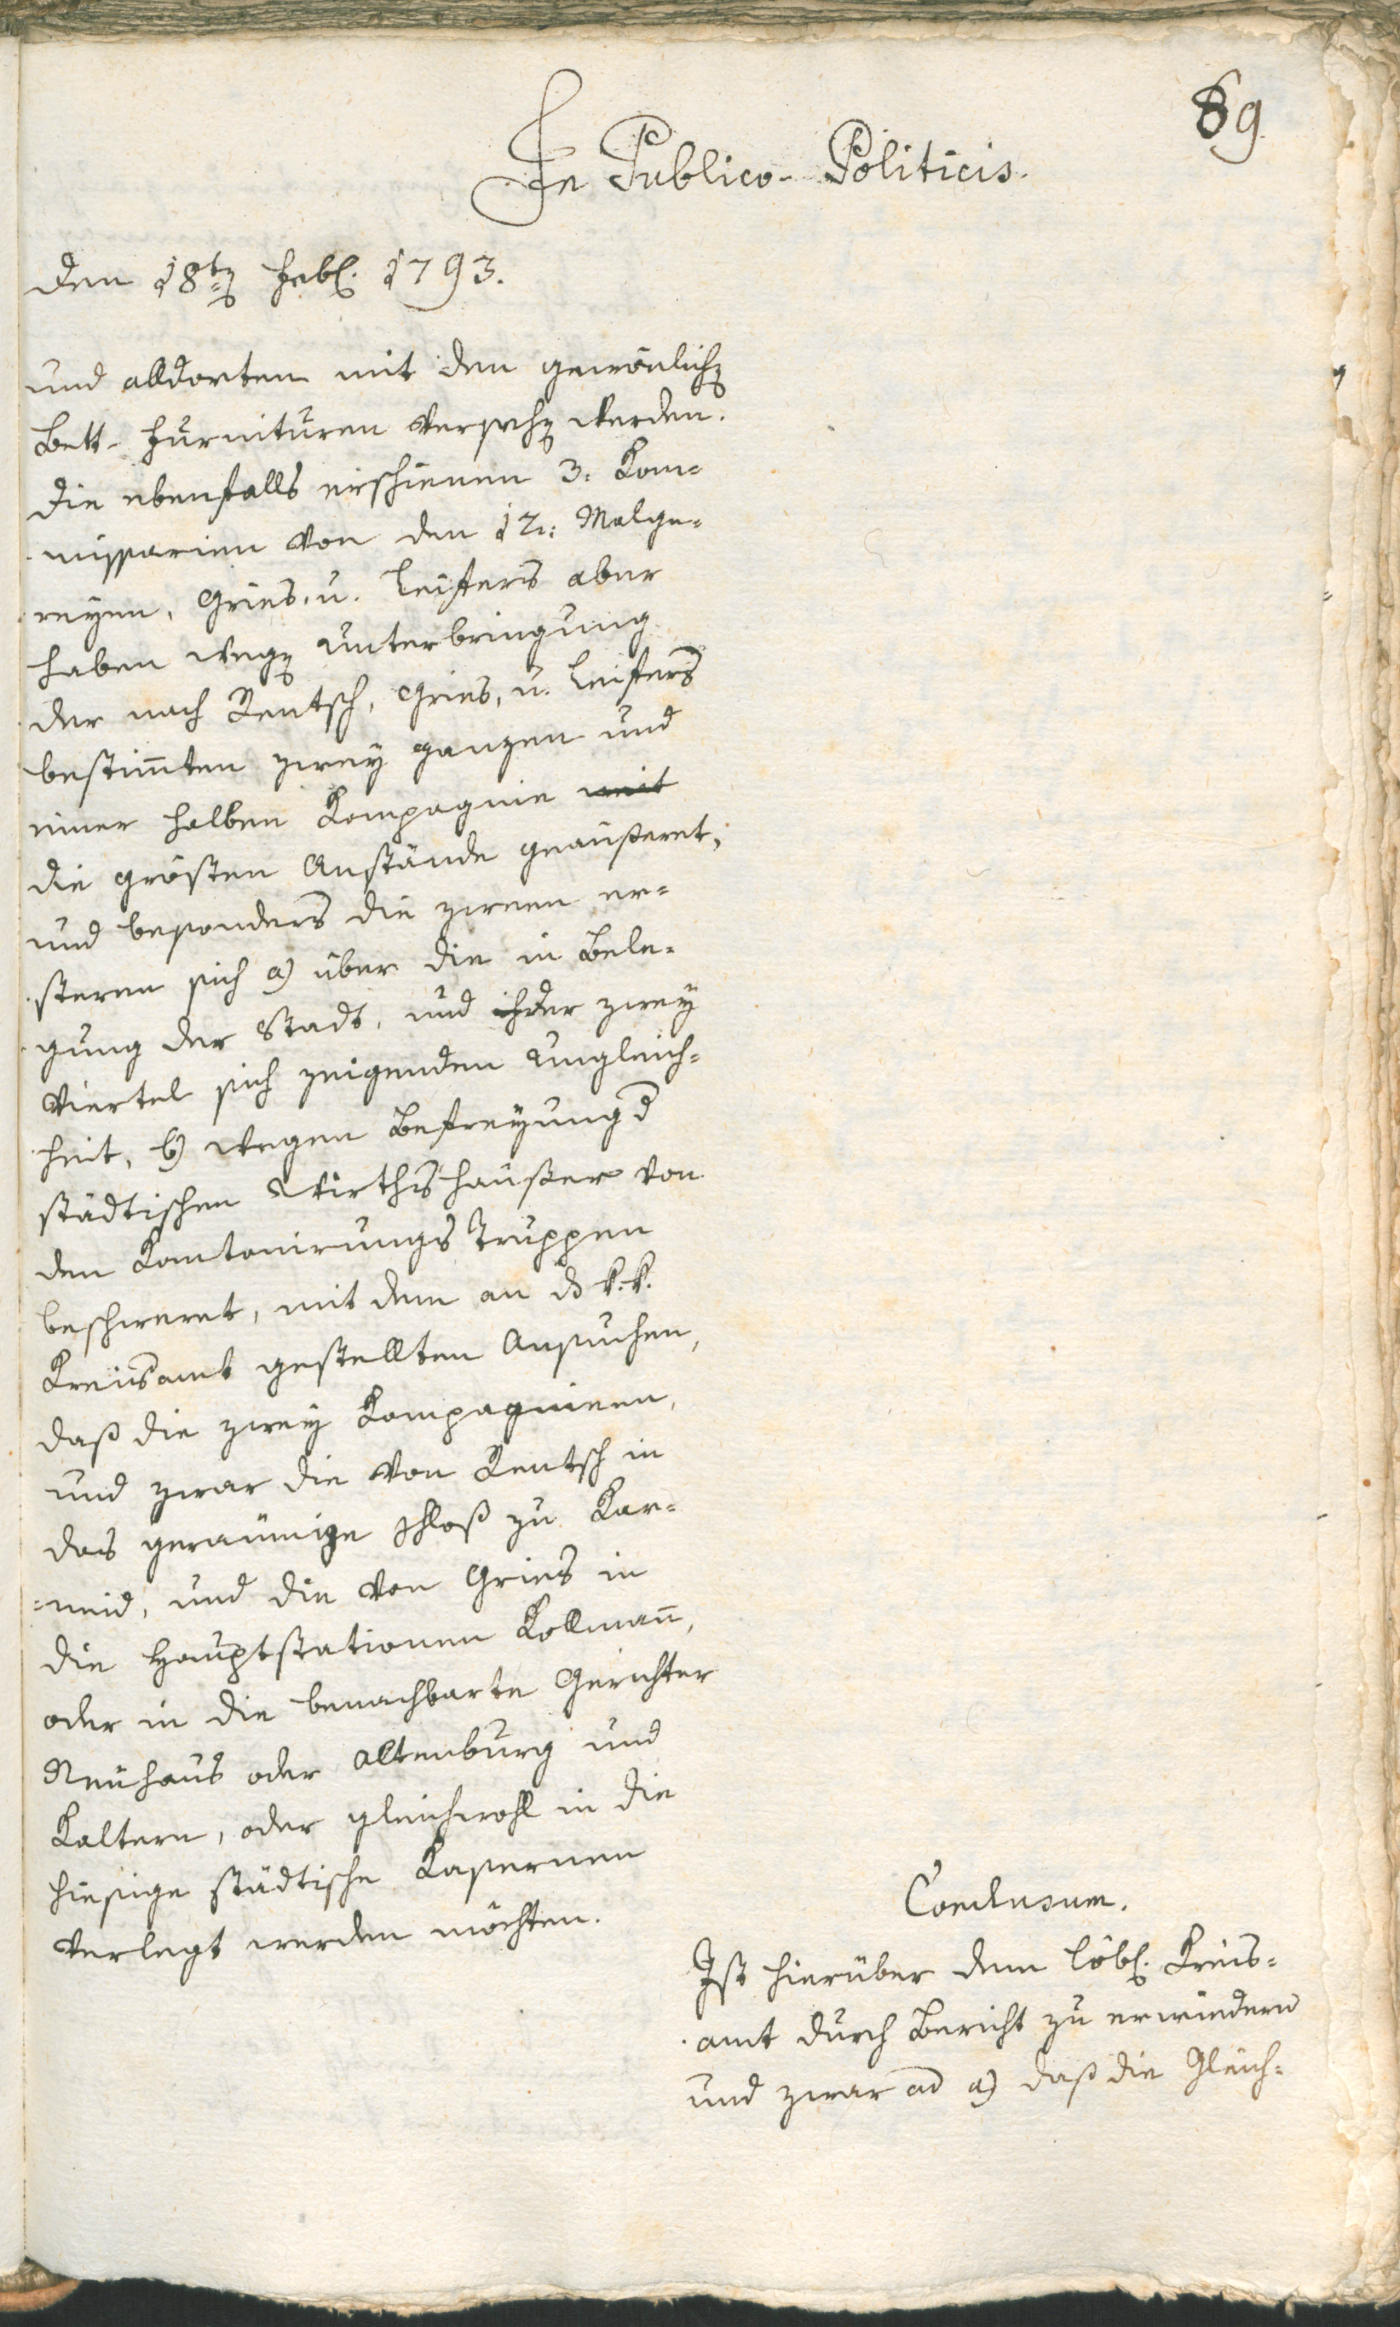 89
In Publico-Politicis.
den 18ten Febl. 1793.
und alldorten mit den gewönlichen
Bett-Furnituren versehen werden.
Die ebenfalls erschienen 3. Kom-
missarien von den 12: Malge-
reyen, Gries, u. Leifers aber
haben wegen Unterbringung
der nach Rentsch, Gries, u. Leifers
bestimten zwey ganzen und
einer halben Kompagnie mit
die grösten Anstände geäußeret,
und besonders die zween er-
steren sich a) über die in Bele-
gung der Stadt, und der zwey
Viertel sich zeigenden Ungleich-
heit, b) wegen Befreyung d
städtischen Wirthshäußer von
den Kantonirungs Truppen
beschweret, mit dem an ds k. k.
Kreisamt gestellten Ansuchen,
daß die zwey Kompagnieen,
und zwar die von Rentsch in
das geräumige Schloß zu Kar-
=neid, und die von Gries in
die Hauptstationen Kollmann,
oder in die benachbarte Gerichter
Neuhaus oder Altenburg und
Kaltern, oder gleichwohl in die
hiesige städtische Kasernen
verlegt werden möchten.
Conclusum.
Ist hierüber dem löbl. Kreis-
amt durch Bericht zu erwiedern
und zwar ad a) daß die Gleich-